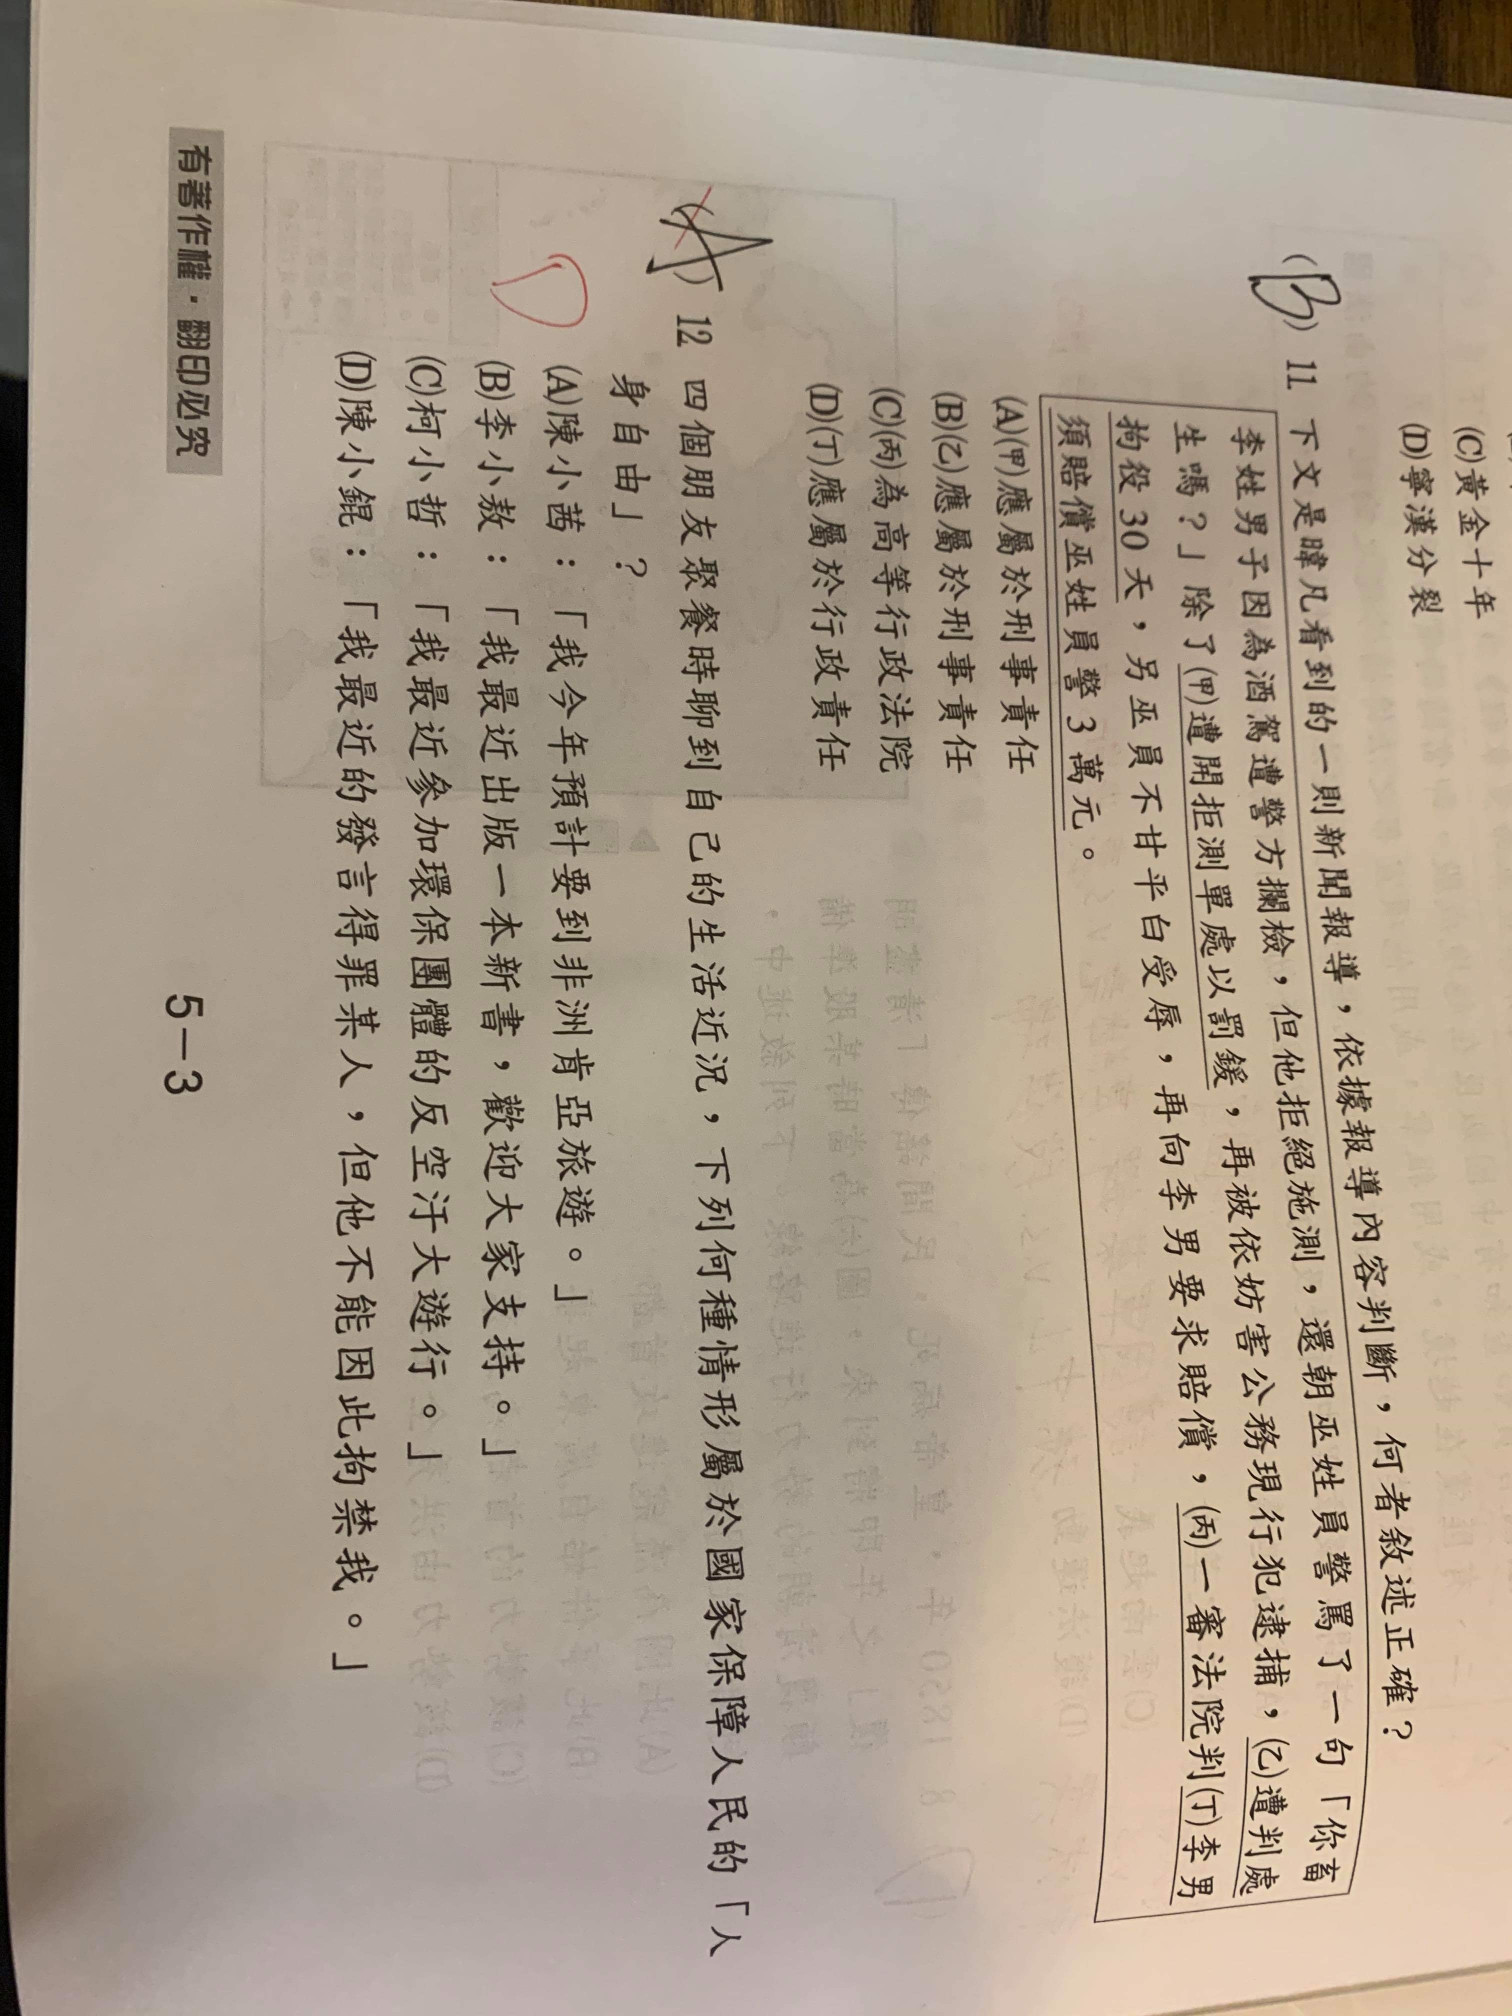 (C)黃金十年
(D)寧漢分裂
(B) 11 下文是暐凡看到的一則新聞報導，依據報導內容判斷，何者敘述正確？
李姓男子因為酒駕遭警方攔檢，但他拒絕施測，還朝巫姓員警罵了一句「你畜
生嗎？」除了(甲)遭開拒測單處以罰鍰，再被依妨害公務現行犯逮捕，(乙)遭判處
拘役30天，另巫員不甘平白受辱，再向李男要求賠償，(丙)一審法院判(丁)李男
須賠償巫姓員警3萬元。
(A)(甲)應屬於刑事責任
(B)(乙)應屬於刑事責任
(C)(丙)為高等行政法院
(D)(丁)應屬於行政責任
(A) 12 四個朋友聚餐時聊到自己的生活近況，下列何種情形屬於國家保障人民的「人
身自由」？
D
(A)陳小茜：「我今年預計要到非洲肯亞旅遊。」
(B)李小敖：「我最近出版一本新書，歡迎大家支持。」
(C)柯小哲：「我最近參加環保團體的反空汙大遊行。」
(D)陳小錕：「我最近的發言得罪某人，但他不能因此拘禁我。」
有著作權·翻印必究
5－3